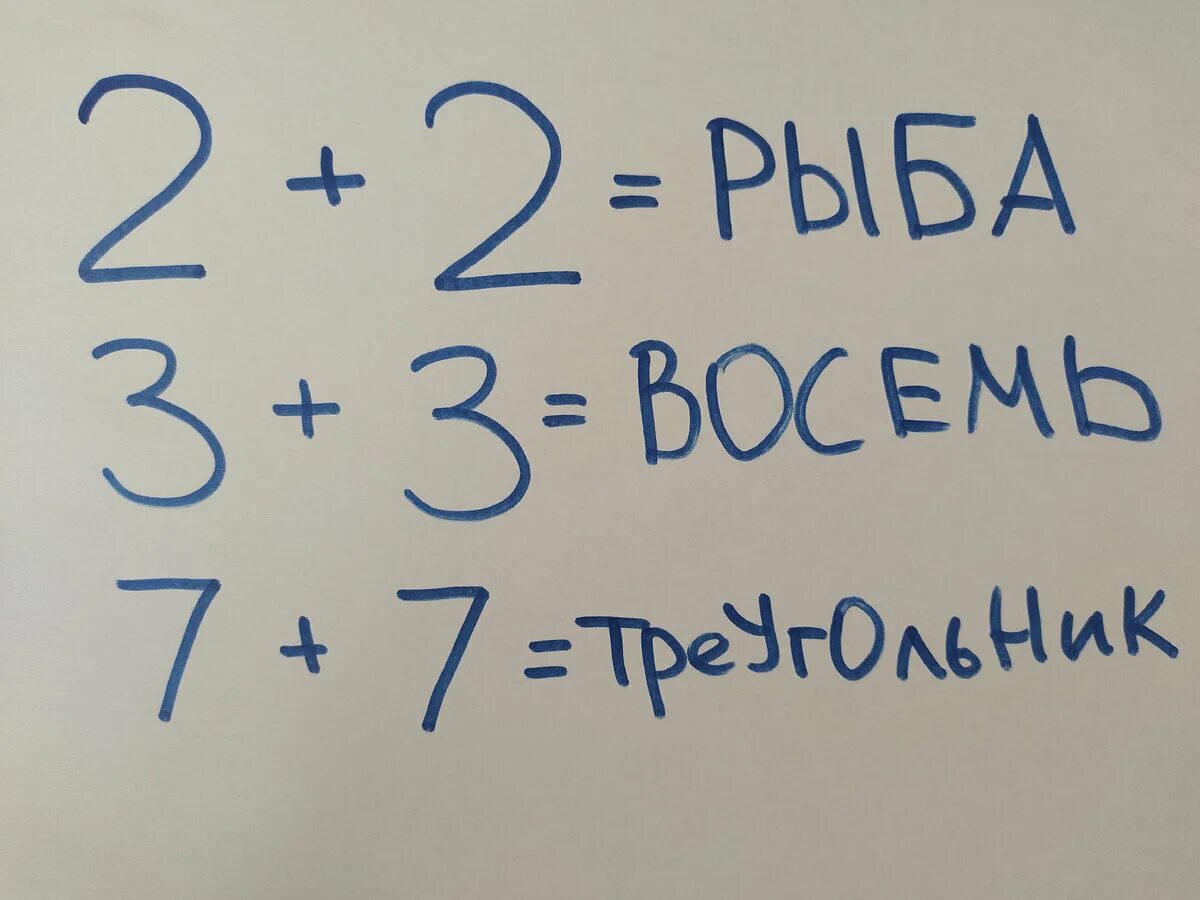 2 + 2 = РЫБА
3 + 3 = ВОСЕМЬ
7 + 7 = ТреУгОльНик